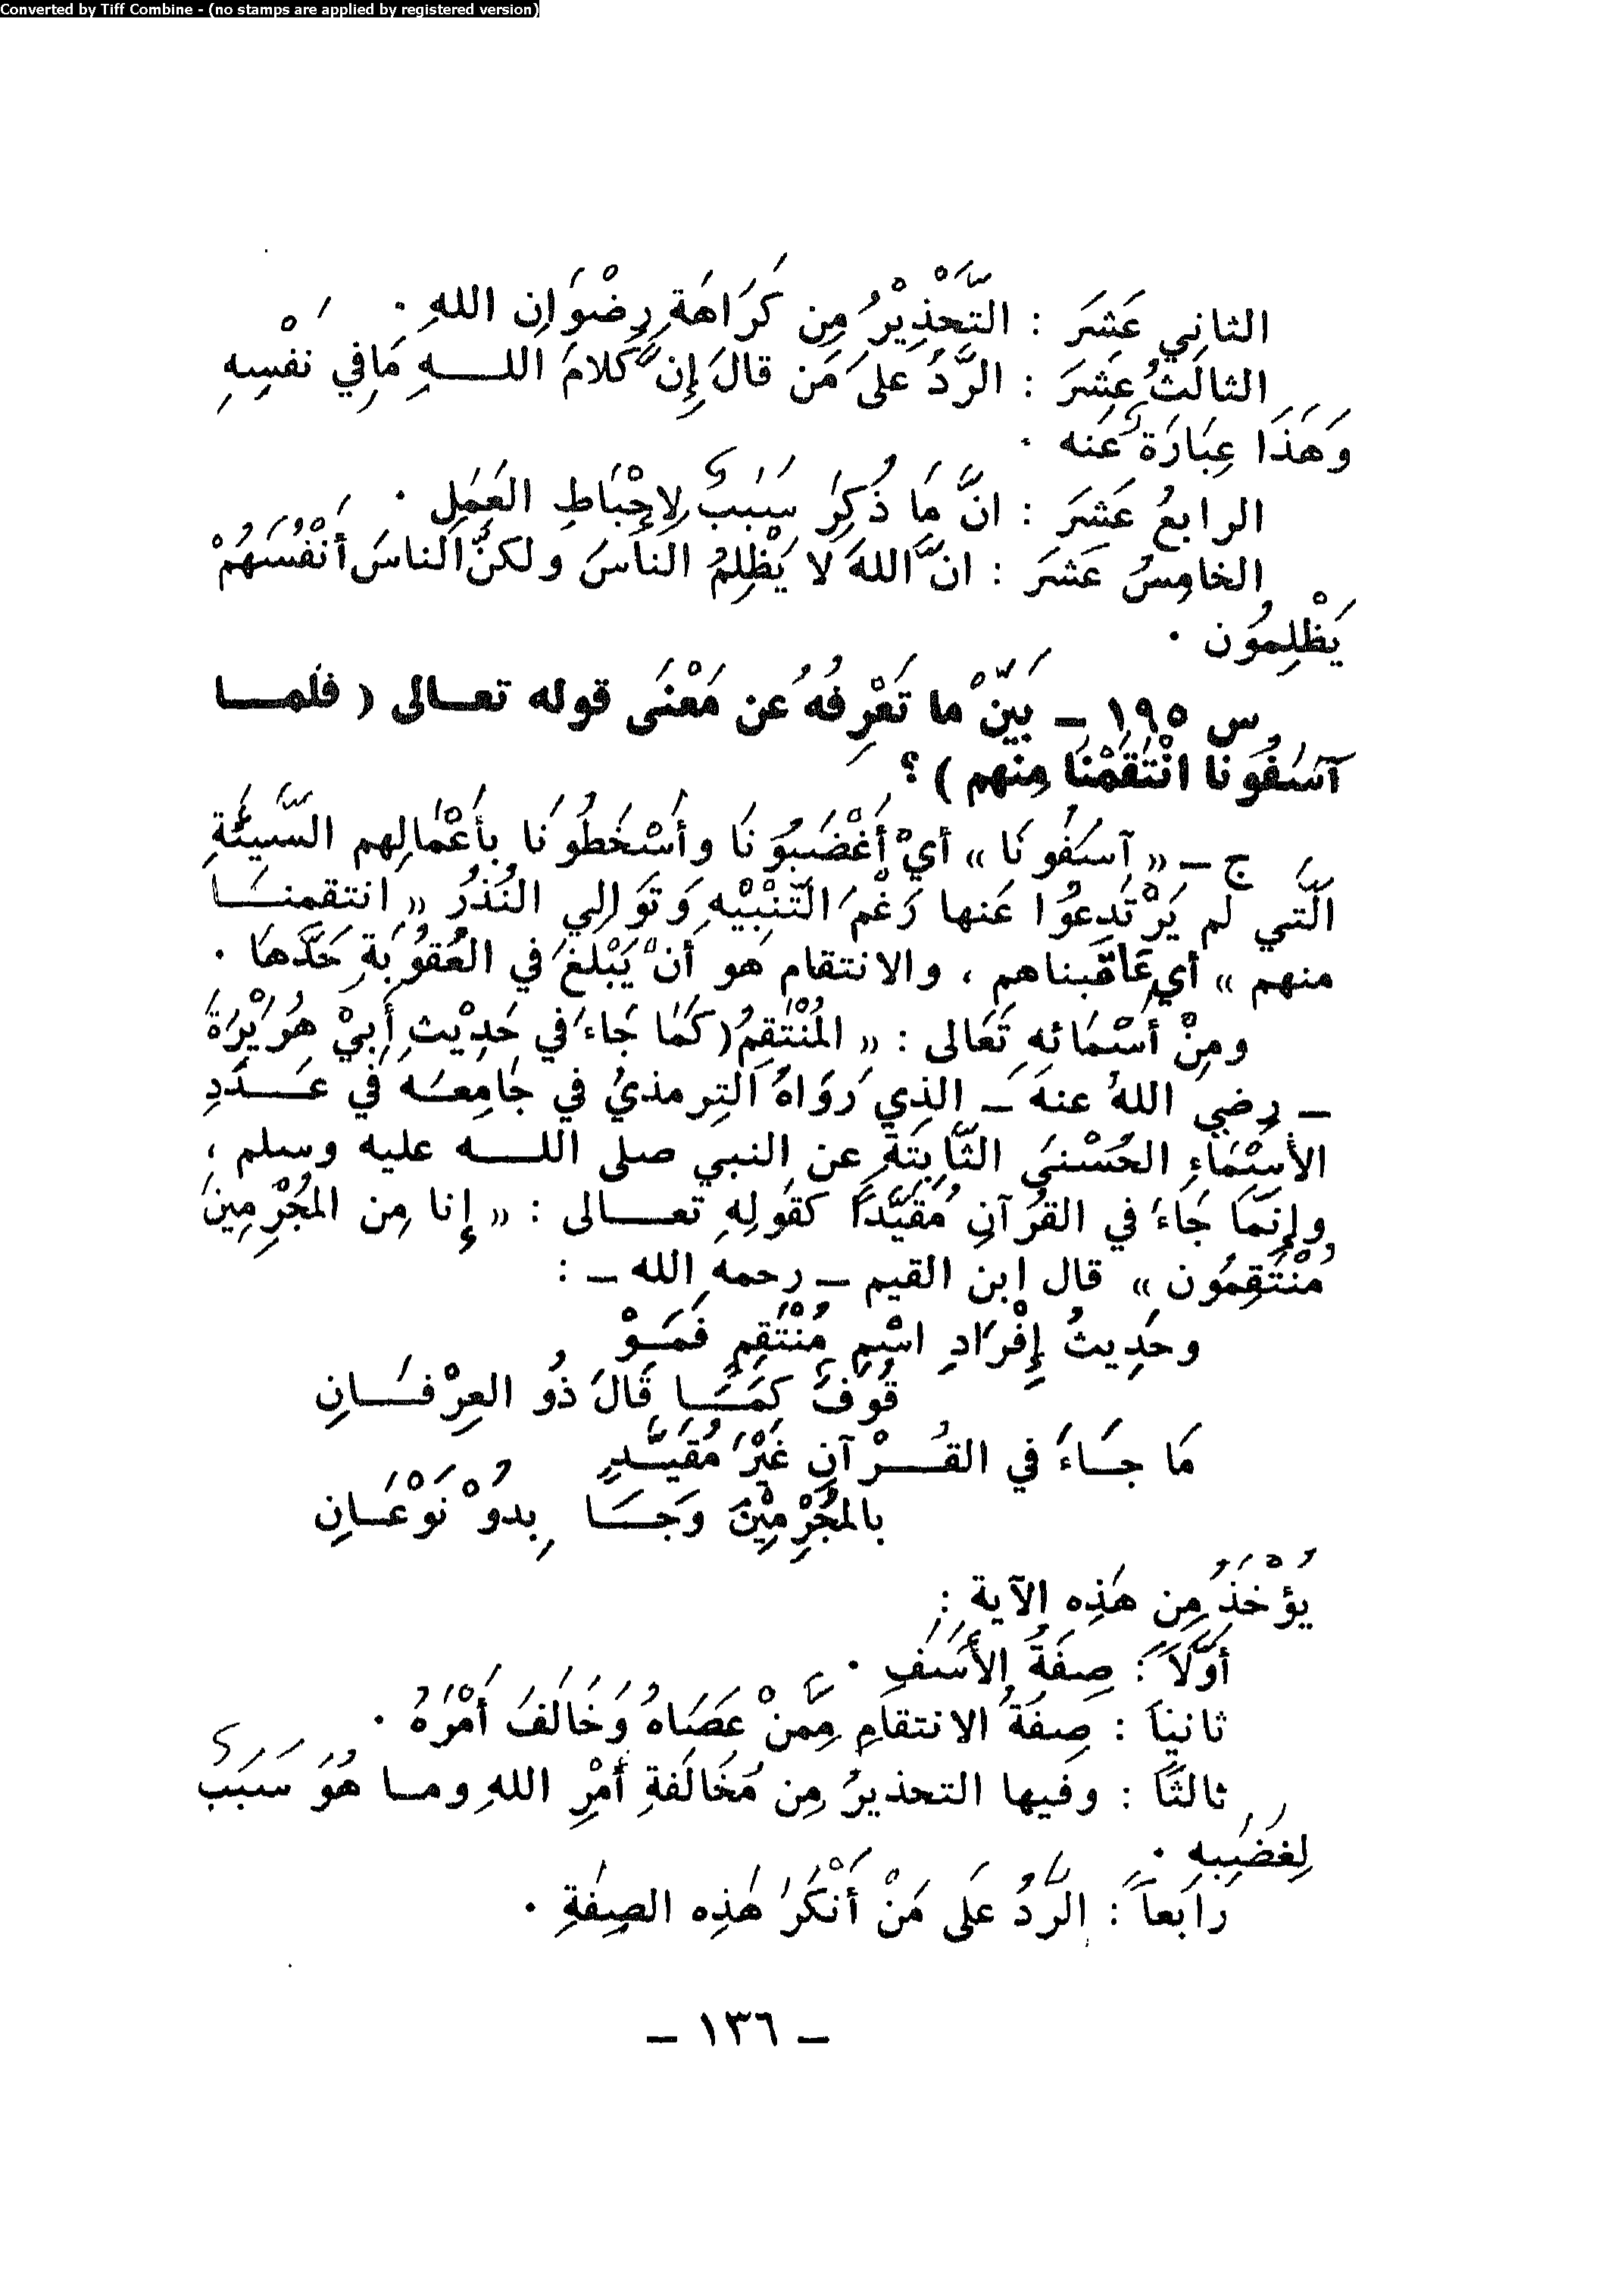 Converted by Tiff Combine - (no stamps are applied by registered version)
الثاني عَشَرَ : التَّحْذِيْرُ مِن كَرَاهَةِ رِضْوَانِ اللهِ .
الثالثُ عَشَرَ : الرَّدُّ عَلَى مَن قالَ إِنَّ كَلامَ اللــهِ مَا في نَفْسِهِ
وَهَذَا عِبَارَةٌ عَنه .
الرابعُ عَشَرَ : انَّ مَا ذُكِرَ سَبَبٌ لِإحْبَاطِ العَمَلِ .
الخامِسُ عَشَرَ : انَّ اللهَ لا يَظْلِمُ الناسَ ولكنَّ الناسَ أَنْفُسَهُمْ
يَظْلِمُون .
س ١٩٥ – بَيِّنْ ما تَعْرِفُهُ عن مَعْنَى قوله تعــالى ( فلمــا
آسَفُونَا انْتَقَمْنَا مِنهم ) ؟
ج – « آسَفُونَا » أيْ أَغْضَبُونَا وأَسْخَطُونَا بأَعْمَالِهم السَّيئَةِ
الَّتي لم يَرْتَدِعُوا عَنها رَغْمَ التَّنْبِيْهِ وَتَوَالِي النُّذُرِ « انتقمنــا
منهم » أي عَاقَبناهم ، والانتقام هو أنْ يَبْلُغَ في العُقُوبَةِ حَدَّهَا .
ومِنْ أَسْمَائه تَعَالى : « المُنْتَقِمُ ( كَمَا جَاءَ في حَدِيْثِ أَبِيْ هُرَيْرَةَ
– رضي اللهُ عنه – الذِي رَوَاهُ التِرمذيُ في جَامِعــه في عَــدَدِ
الأَسْمَاءِ الحُسْنَى الثَّابِتَةِ عن النبي صلى اللــه عليه وسلم ،
وإنَّمَا جَاءَ في القُرآنِ مُقَيَّداً كقَولِهِ تعــالى : « إِنا مِن المُجْرِمِينَ
مُنْتَقِمُون » قال ابن القيم – رحمه الله – :
وحَدِيثُ إِفْرَادِ اسْمِ مُنْتَقِمٍ فَمَــوْ
قُوفٌ كَمَــا قَالَ ذُو العِرْفــانِ
مَا جَــاءَ في القُــرْآنِ غَيْرَ مُقَيَّــدٍ
بالمُجْرِمِيْنَ وَجَــا بِدُوْ نَوْعَــانِ
يُؤْخَذُ مِن هَذِه الآية :
أَوَّلاً : صِفَةُ الأَسَفِ .
ثانياً : صِفَةُ الانتقامِ مِمَّنْ عَصَاهُ وَخَالَفَ أَمْرَهُ .
ثالثاً : وفيها التحذيرُ مِن مُخَالَفةِ أَمْرِ اللهِ ومــا هُوَ سَبَبٌ
لِغَضَبِهِ .
رابعاً : الرَّدُ عَلَى مَنْ أَنْكَرَ هَذِه الصِفَةِ .
– ١٣٦ –